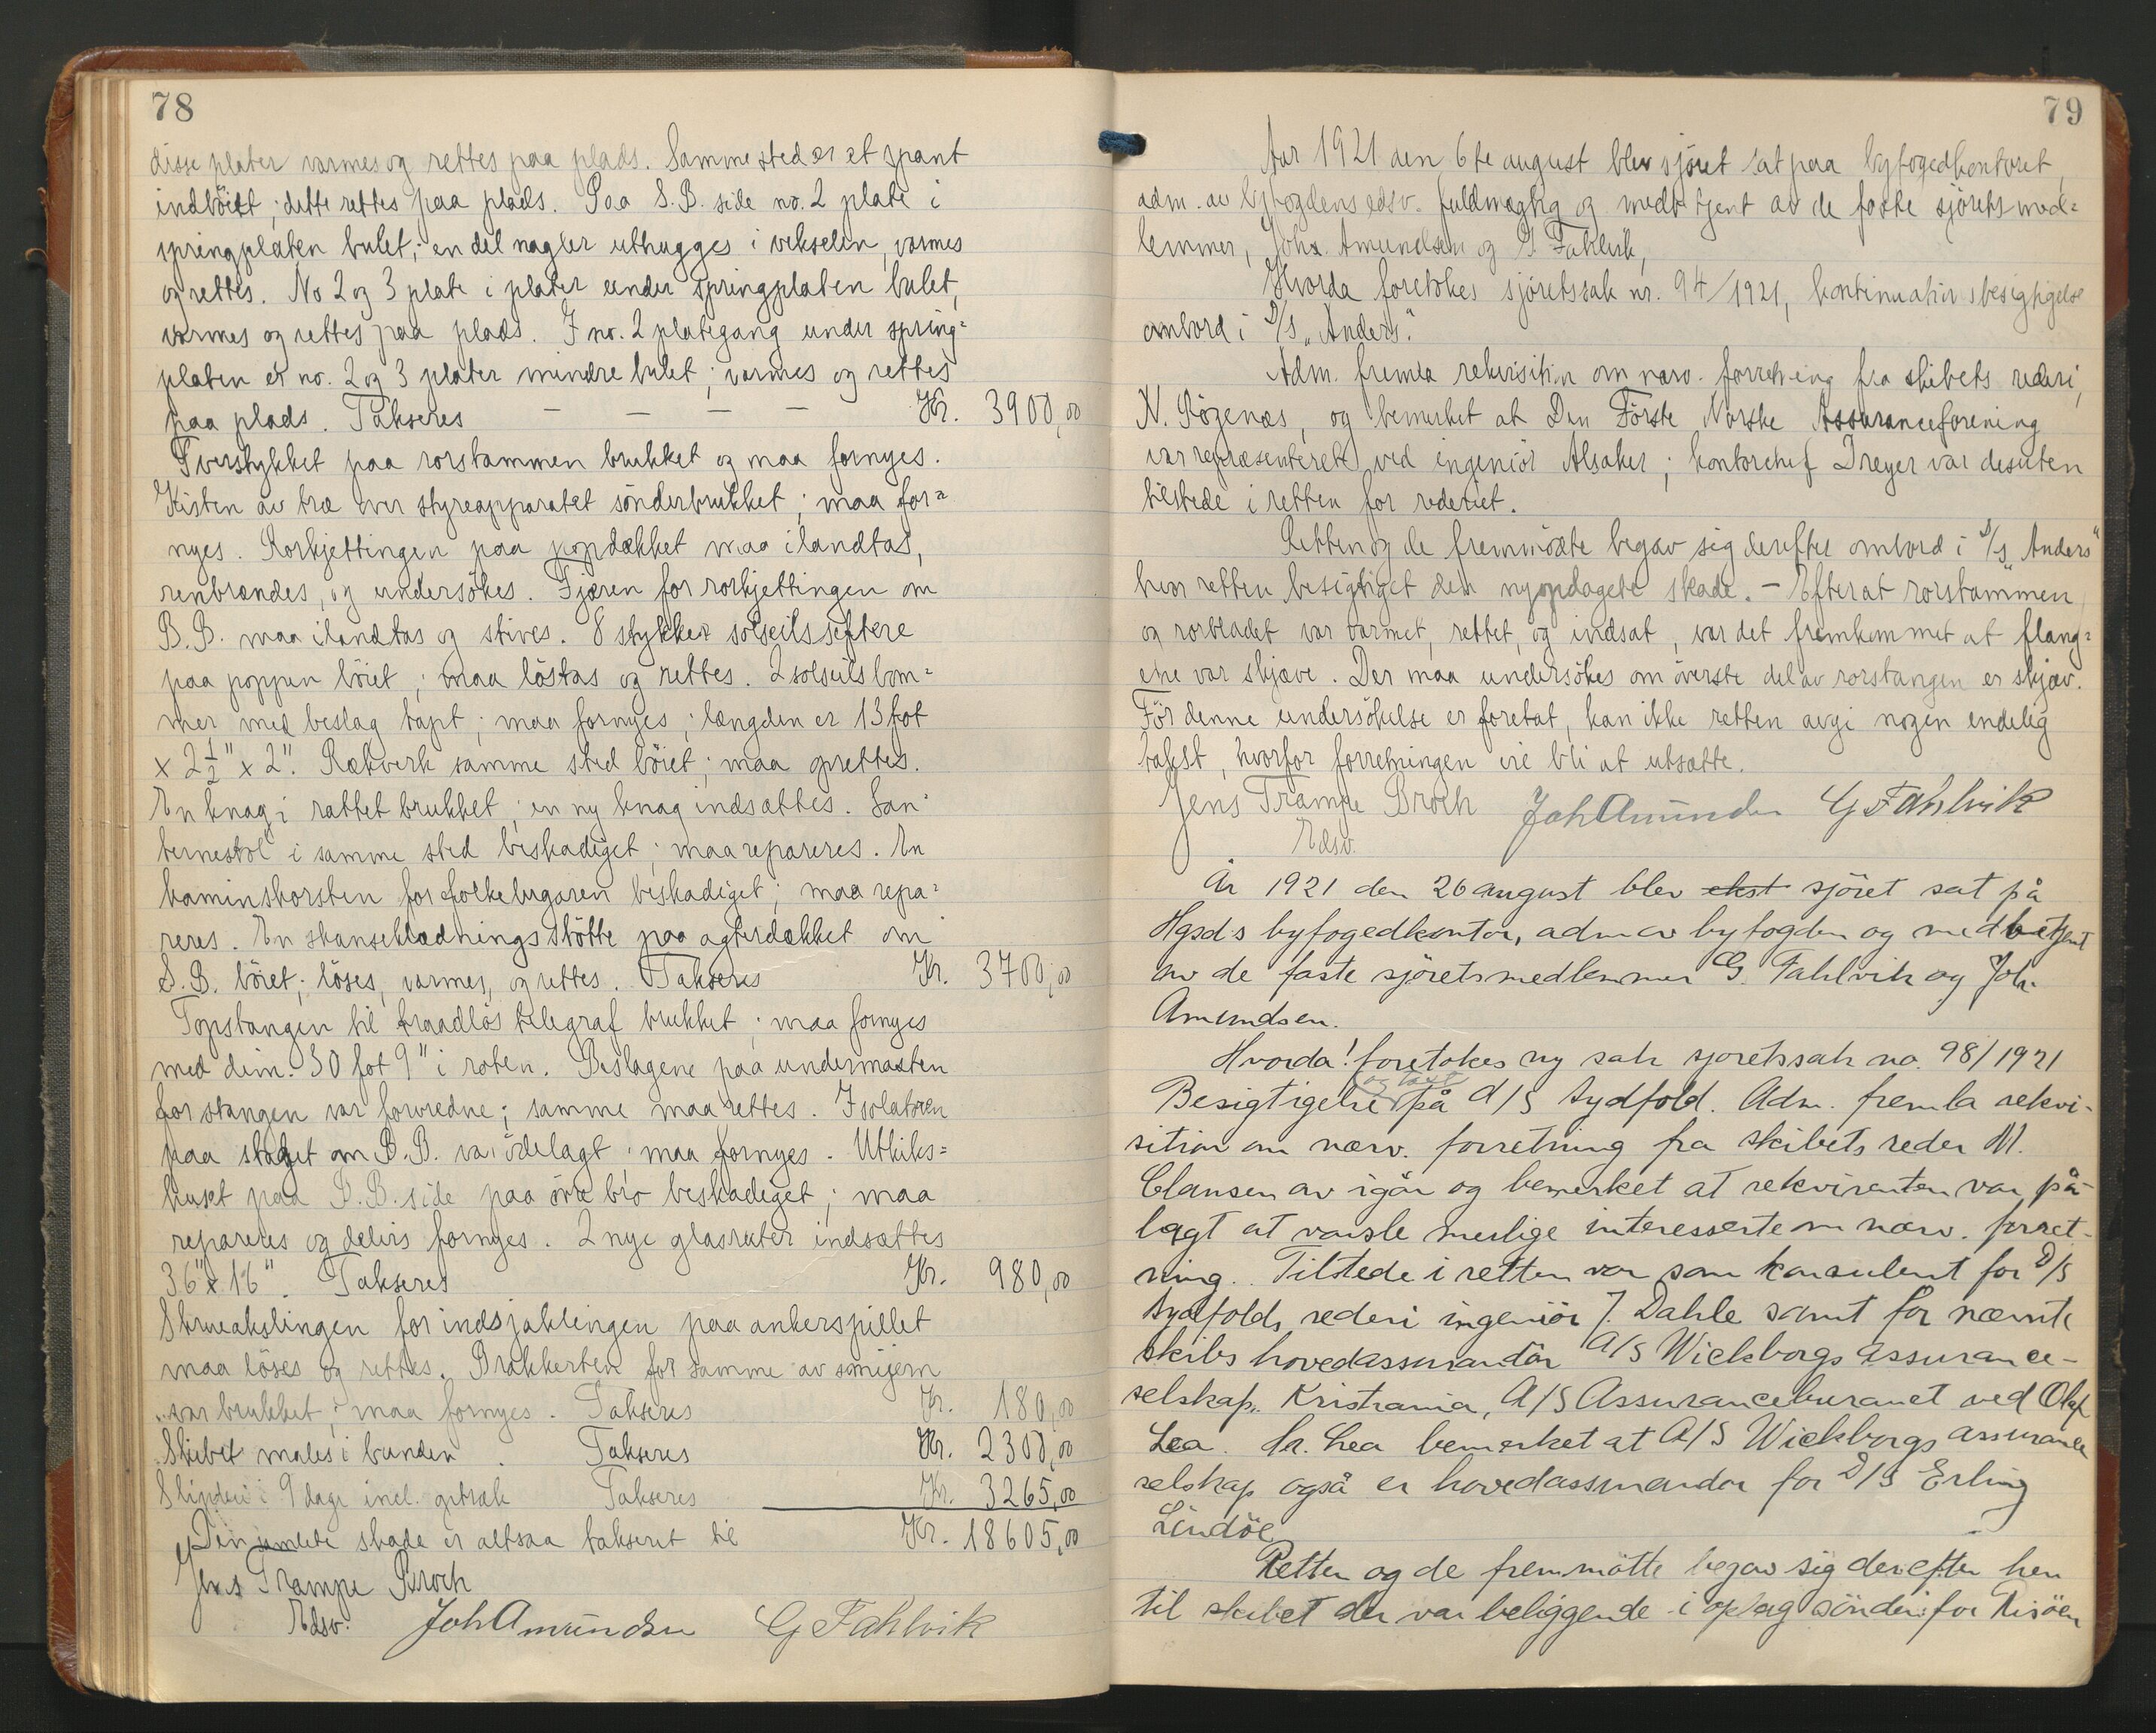 78
disse plater varmes og rettes paa plads. Sammested er et spant
indböiet; dette rettes paa plads. Paa S.B. side no. 2 plate i
springplaten bulet; en del nagler uthugges i vekselen, varmes
og rettes. No 2 og 3 plate i plater under springplaten bulet,
varmes og rettes paa plads. I no. 2 plategang under spring=
platen er no. 2 og 3 plater mindre bulet; varmes og rettes
paa plads. Takseres — — — — Kr. 3900,00
Tverstykket paa rorstammen brukket og maa fornyes.
Kisten av træ over styreapparatet sönderbrukket; maa for=
nyes. Rorkjettingen paa popdækket maa ilandtas,
renbrændes, og undersökes. Fjæren for rorkjettingen om
B.B. maa ilandtas og stives. 8 stykker solseilsseftere
paa poppen böiet; maa löstas og rettes. 2 solseilsbom=
mer med beslag tapt; maa fornyes; længden er 13 fot
x 2½" x 2". Rækverk samme sted böiet; maa oprettes.
En knag i rattet brukket; en ny knag indsættes. Lan=
ternestol i samme sted beskadiget; maa repareres. En
kaminskorsten for folkelugaren beskadiget; maa repa=
reres. En skanseklædningsstötte paa agterdækket om
S.B. böiet; löses, varmes, og rettes. Takseres Kr. 3700,00
Topstangen til traadlös telegraf brukket; maa fornyes
med dim. 30 fot 9" i roten. Beslagene paa undermasten
for stangen var forvredne; samme maa rettes. Isolatoren
paa staget om B.B. var ödelagt; maa fornyes. Utkiks=
huset paa S.B. side paa övre bro beskadiget; maa
repareres og delvis fornyes. 2 nye glasruter indsættes
36" x 16". Takseres Kr. 980,00
Skrueakslingen for indsjaklingen paa ankerspillet
maa löses og rettes. Brakketen for samme av smijern
var brukket; maa fornyes. Takseres Kr. 180,00
Skibet males i bunden. Takseres Kr. 2300,00
Slippen i 9 dage incl. optræk Takseres Kr. 3265,00
Den samlete skade er altsaa taksert til Kr. 18605,00
Jens Trampe Broch
Edsv. Joh Amundsen G Fahlvik
79
Aar 1921 den 6te august blev sjöret sat paa byfogedkontoret,
adm. av byfogdens edsv. fuldmægtig og medbetjent av de faste sjöretsmed=
lemmer, Joh. Amundsen og G. Fahlvik,
Hvorda foretokes sjöretssak nr. 94/1921, kontinuationsbesigtigelse
ombord i D/S "Anders".
Adm. fremla rekvisition om nærv. forretning fra skibets rederi,
N. Rögenæs, og bemerket at Den Förste Norske Assuranceforening
var repræsenteret ved ingeniör Alsaker; kontorchef Dreyer var desuten
tilstede i retten for rederiet.
Retten og de fremmödte begav sig derefter ombord i D/S "Anders"
hvor retten besigtiget den nyopdagede skade. – Efterat rorstammen
og rorbladet var varmet, rettet, og indsat, var det fremkommet at flang=
ene var skjæve. Der maa undersökes om överste del av rorstangen er skjæv.
För denne undersökelse er foretat, kan ikke retten avgi nogen endelig
takst, hvorfor forretningen vil bli at utsætte.
Jens Trampe Broch Joh Amundsen G Fahlvik
Edsv.
År 1921 den 26 august blev ekst sjöret sat på
Hgsd's byfogedkontor, adm av byfogden og medbetjent
av de faste sjöretsmedlemmer G. Fahlvik og Joh.
Amundsen.
Hvorda! foretokes ny sak sjoretssak no. 98/1921
og taxt
Besigtigelse på d/s Sydfold. Adm. fremla rekvi-
sition om nærv. forretning fra skibets reder M.
Clausen av igår og bemerket at rekvirenten var på-
lagt at varsle mulige interesserte om nærv. forret-
ning. Tilstede i retten var som konsulent for D/S
Sydfolds rederi ingeniör J. Dahle samt for nævnte
skibs hovedassurandör A/S Wickborgs assurance-
selskap. Kristiania, A/S Assuranceburauet ved Olaf
Lea. Hr. Lea bemerket at A/S Wickborgs assurance
selskap også er hovedassurandør for D/S Erling
Lindöe
Retten og de fremmötte begav sig derefter hen
til skibet der var beliggende i oplag sönder for Risöen